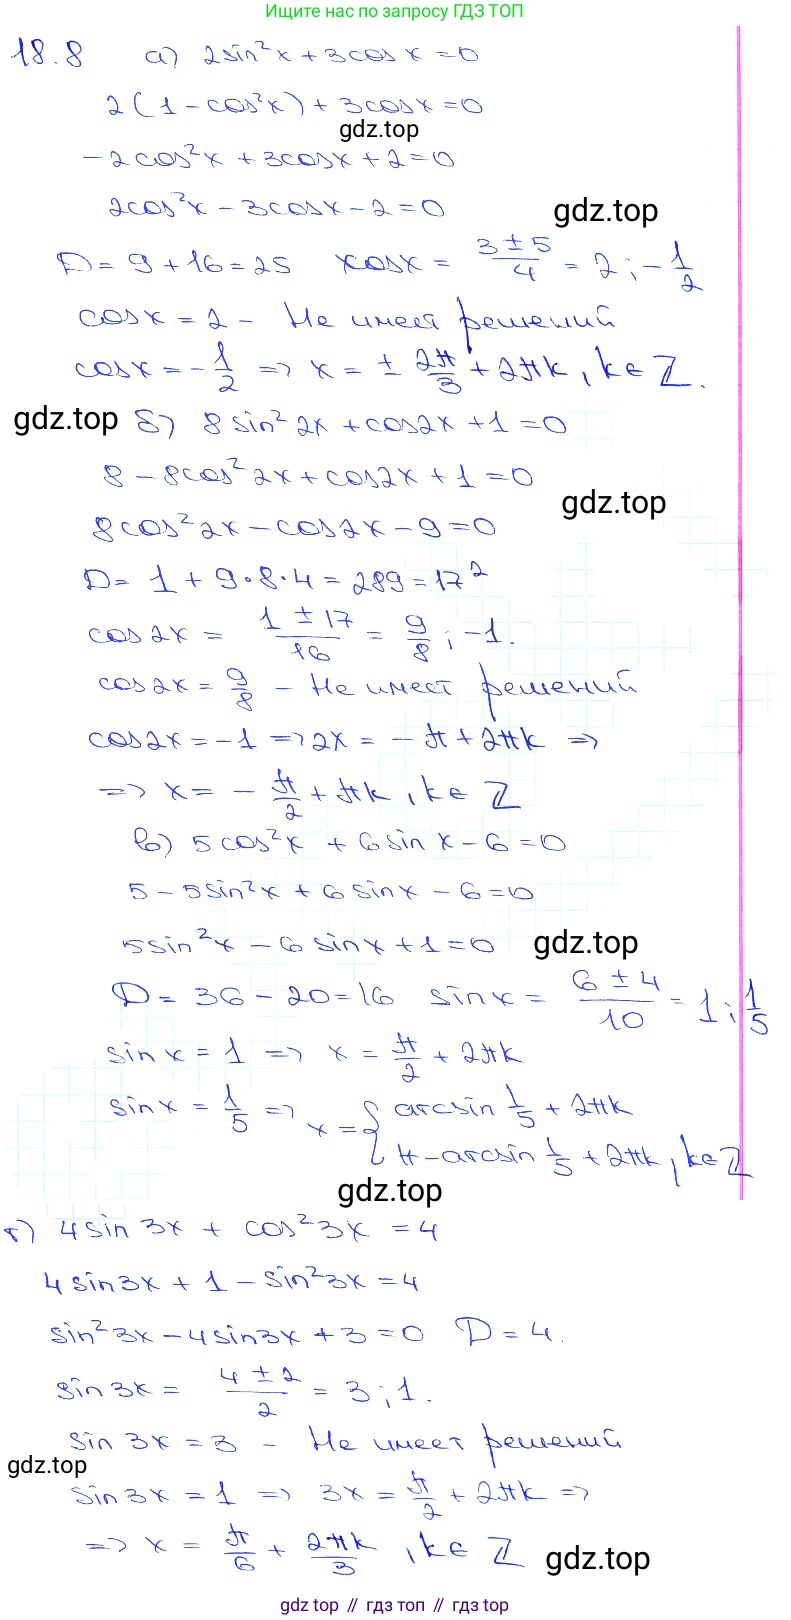 Ищите нас по запросу ГДЗ ТОП
18.8 а) 2sin²x + 3cosx = 0
2(1 - cos²x) + 3cosx = 0
gdz.top
-2cos²x + 3cosx + 2 = 0
2cos²x - 3cosx - 2 = 0
gdz.top
D = 9 + 16 = 25 xosx = (3 ± 5)/4 = 2; -1/2
cosx = 2 - Не имеет решений
cosx = -1/2 => x = ± 2π/3 + 2πk, k∈Z.
gdz.top б) 8sin²2x + cos2x + 1 = 0
8 - 8cos²2x + cos2x + 1 = 0
gdz.top
8cos²2x - cos2x - 9 = 0
D = 1 + 9·8·4 = 289 = 17²
cos2x = (1 ± 17)/16 = 9/8; -1.
cos2x = 9/8 - Не имеет решений
cos2x = -1 => 2x = -π + 2πk =>
=> x = -π/2 + πk, k∈Z
в) 5cos²x + 6sinx - 6 = 0
5 - 5sin²x + 6sinx - 6 = 0
5sin²x - 6sinx + 1 = 0 gdz.top
D = 36 - 20 = 16 sinx = (6 ± 4)/10 = 1; 1/5
sinx = 1 => x = π/2 + 2πk
sinx = 1/5 => x = { arcsin 1/5 + 2πk
π - arcsin 1/5 + 2πk, k∈Z
gdz.top
г) 4sin3x + cos²3x = 4
4sin3x + 1 - sin²3x = 4
sin²3x - 4sin3x + 3 = 0 D = 4.
sin3x = (4 ± 2)/2 = 3; 1.
sin3x = 3 - Не имеет решений
gdz.top
sin3x = 1 => 3x = π/2 + 2πk =>
=> x = π/6 + 2πk/3, k∈Z gdz.top
gdz top // гдз топ // gdz top